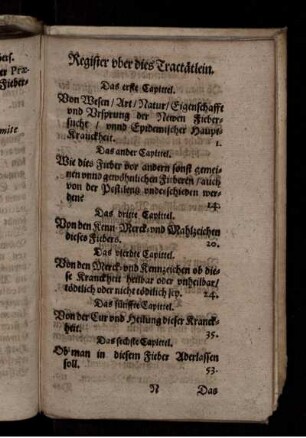 Register vber dies Tractätlein.
Das erste Capittel.
Von Wesen/ Art/ Natur/ Eigenschafft
vnd Vrsprung der Newen Fieber-
sucht/ vnnd Epidemischer Haupt-
Kranckheit. 1.
Das ander Capittel.
Wie dies Fieber vor andern sonst gemei-
nen vnnd gewöhnlichen Fieberen/ auch
von der Pestilentz vnderschieden wer-
den? 14.
Das dritte Capittel.
Von den Kenn-Merck- vnd Mahlzeichen
dieses Fiebers. 20.
Das vierdte Capittel.
Von den Merck- vnd Kennzeichen ob die-
se Kranckheit heilbar oder vnheilbar/
tödtlich oder nicht tödtlich sey. 24.
Das fünffte Capittel.
Von der Cur vnd Heilung dieser Kranck-
heit. 35.
Das sechste Capittel.
Ob man in diesem Fieber Aderlassen
soll. 53.
N Das